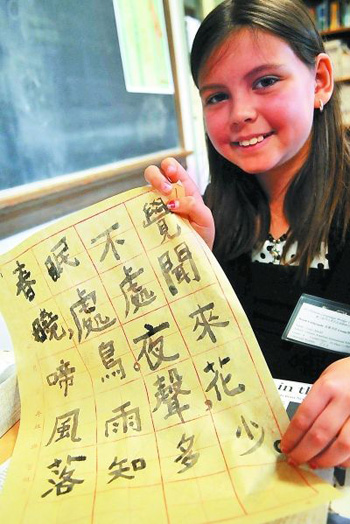 春眠不覺
曉,處處聞
啼鳥.夜來
風雨聲,花
落知多少。
in the